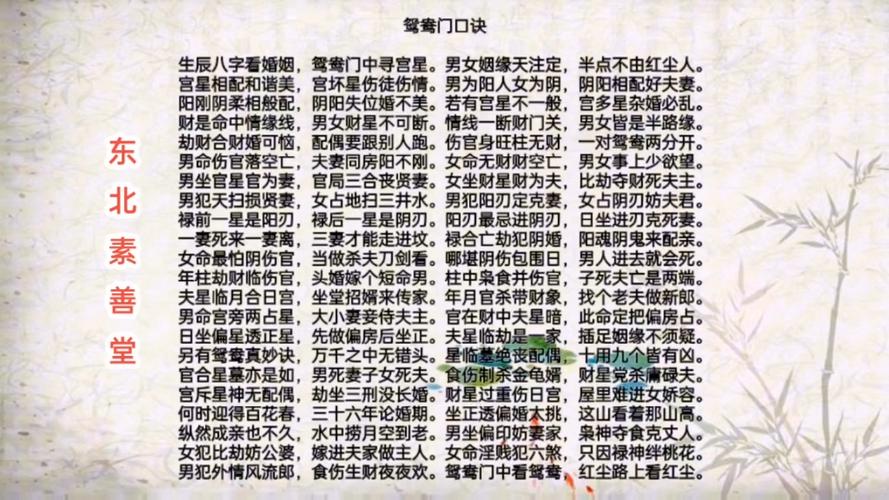 鸳鸯门口诀
生辰八字看婚姻，鸳鸯门中寻宫星。男女姻缘天注定，半点不由红尘人。
宫星相配和谐美，宫坏星伤徒伤情。男为阳人女为阴，阴阳相配好夫妻。
阳刚阴柔相般配，阴阳失位婚不美。若有宫星不一般，宫多星杂婚必乱。
财是命中情缘线，男女财星不可断。情线一断财门关，男女皆是半路缘。
劫财合财婚可恼，配偶要跟别人跑。伤官身旺柱无财，一对鸳鸯两分开。
男命伤官落空亡，夫妻同房阳不刚。女命无财财空亡，男女事上少欲望。
男坐官星官为妻，官局三合丧贤妻。女坐财星财为夫，比劫夺财死夫主。
男犯天扫损贤妻，女占地扫三井水。男犯阳刃定克妻，女占阴刃妨夫君。
禄前一星是阳刃，禄后一星是阴刃。阳刃最忌进阴刃，日坐进刃克死妻。
一妻死来一妻离，三妻才能走进坟。禄合亡劫犯阴婚，阳魂阴鬼来配亲。
女命最怕阴伤官，当做杀夫刀剑看。哪堪阴伤包围日，男人进去就会死。
年柱劫财临伤官，头婚嫁个短命男。柱中枭食并伤官，子死夫亡是两端。
夫星临月合日宫，坐堂招婿来传家。年月官杀带财象，找个老夫做新郎。
男命宫旁两占星，大小妻妾侍夫主。官在财中夫星暗，此命定把偏房占。
日坐偏星透正星，先做偏房后坐正。夫星临劫是一家，插足姻缘不须疑。
另有鸳鸯真妙诀，万千之中无错头。星临墓绝丧配偶，十用九个皆有凶。
官合星墓亦是如，男死妻子女死夫。食伤制杀金龟婿，财星党杀庸碌夫。
宫斥星神无配偶，劫坐三刑没长婚。财星过重伤日宫，屋里难进女娇容。
何时迎得百花春，三十六年论婚期。坐正透偏婚太挑，这山看着那山高。
纵然成亲也不久，水中捞月空到老。男坐偏印妨妻家，枭神夺食克丈人。
女犯比劫妨公婆，嫁进夫家做主人。女命淫贱犯六煞，只因禄神绊桃花。
男犯外情风流郎，食伤生财夜夜欢。鸳鸯门中看鸳鸯，红尘路上看红尘。
东北素善堂